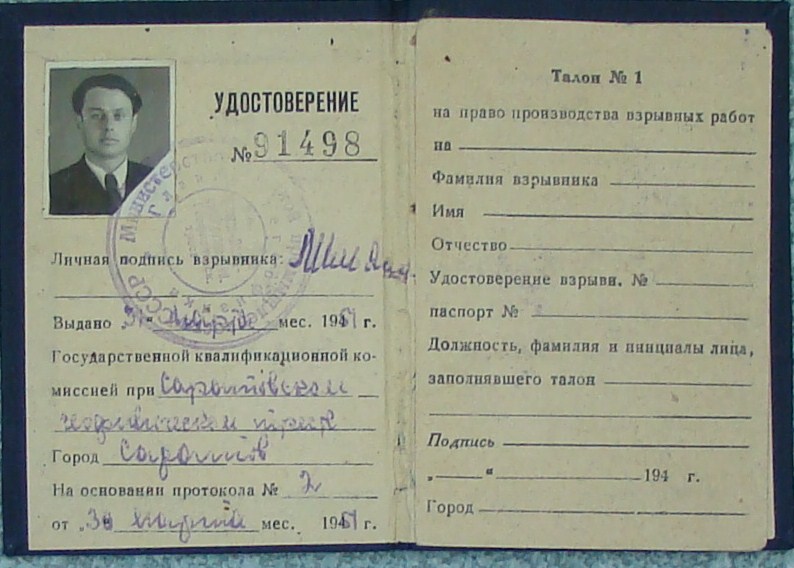 УДОСТОВЕРЕНИЕ
№ 91498
Министерство
СССР
Личная подпись взрывника:
Выдано „31“ марта мес. 1951 г.
Государственной квалификационной ко-
миссией при Саратовском
геофизическом тресте
Город Саратов
На основании протокола № 2
от „30 марта мес. 1951 г.
Талон № 1
на право производства взрывных работ
на
Фамилия взрывника
Имя
Отчество
Удостоверение взрывн. №
паспорт №
Должность, фамилия и инициалы лица,
заполнявшего талон
Подпись
„ “ 194 г.
Город